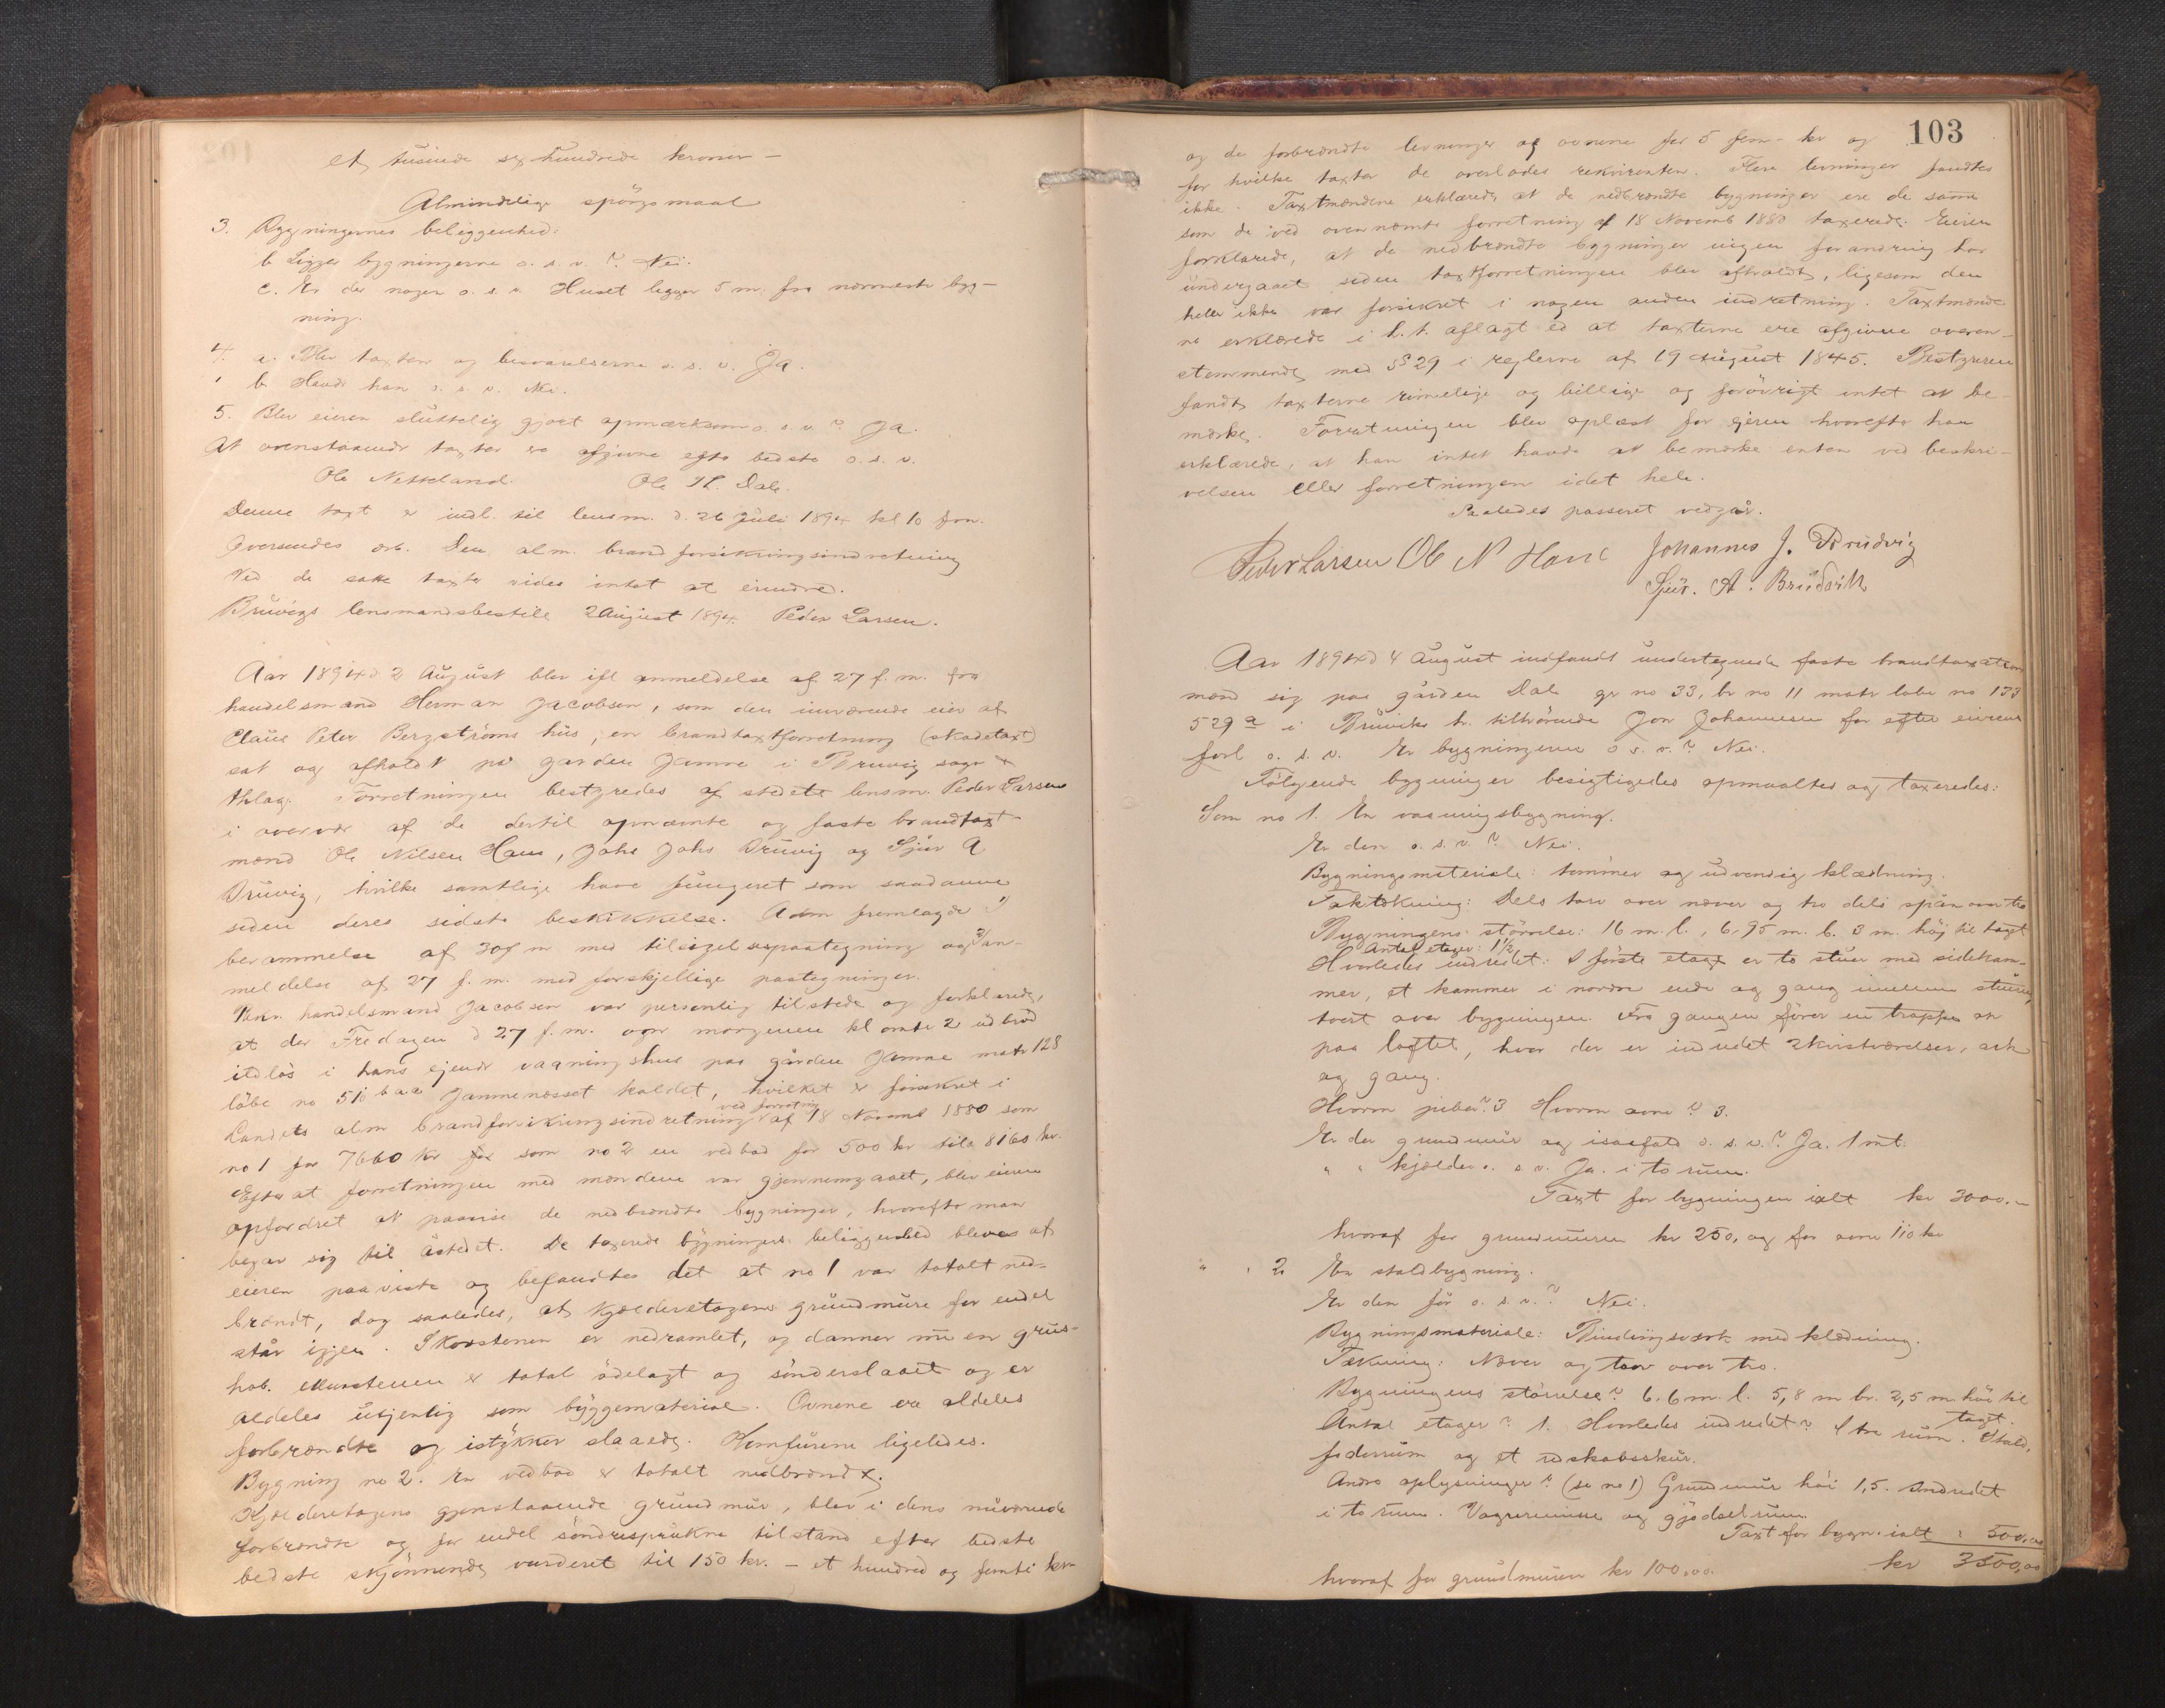 et tusinde sexhundrede kroner —
Almindelige spörgsmaal
3. Bygningernes beliggenhed:
b Ligger bygningerne o. s. v. ? Nei.
c. Er der nogen o. s. v. Huset ligger 5 m. fra nærmeste byg-
ning.
4. a. Blev taxten og besvarelserne o. s. v. Ja.
b Havde han o. s. v. Nei.
5. Blev eieren sluttelig gjort opmærksom o. s. v. ? Ja.
At ovenstaaende taxter er afgivne efter bedste o. s. v.
Ole Nesseland. Ole H. Dale.
Denne taxt er indl. til lensm. d. 26 Juli 1894 kl 10 fm.
Oversendes Den alm. brandforsikringsindretning
Ved de satte taxter vides intet at erindre.
Bruvigs lensmandsbestill 2 August 1894. Peder Larsen.
Aar 1894 d 2 August blev ifl anmeldelse af 27 f. m. fra
handelsmand Herman Jacobsen, som den nuværende eier af
Claus Peter Bergströms hus, en brandtaxtforretning (skadetaxt)
sat og afholdt på garden Jamne i Bruvig sogn &
thlag. Forretningen bestyredes af stedets lensm. Peder Larsen
i overvær af de dertil opnævnte og faste brandtaxt-
mænd Ole Nilsen Haus, Johs Johs Bruvig og Sjur A
Bruvig, hvilke samtlige have fungeret som saadanne
siden deres sidste beskikkelse. Adm fremlagde 1)
berammelse af 30 f m med tilsigelsespaategning og 2) an-
meldelse af 27 f. m. med forskjellige paategninger.
Rkv. handelsmand Jacobsen var personlig tilstede og forklarede,
at der Fredagen d 27 f. m. om morgenen kl omtr 2 udbrød
ildløs i hans eiende vaaningshus paa gården Jamne matr 128
løbe no 516 b a a Jamnenæsset kaldet, hvilket er forsikret i
Landets alm brandforsikringsindretning ved forretning af 18 Novemb 1880 som
no 1 for 7660 kr som no 2 en vedbod for 500 kr tils 8160 kr.
Efter at forretningen med mændene var gjennemgaaet, blev eieren
opfordret at paavise de nedbrændte bygninger, hvorefter man
begav sig til åstedet. De taxerede bygningers beliggenhed bleve af
eieren paaviste og befandtes det at no 1 var totalt ned-
brændt, dog saaledes, at kjelderetagens grundmure for endel
står igjen. Skorstenen er nedramlet, og danner nu en grus-
hob. Murstenen er total ødelagt og sønderslaaet og er
aldeles utjenlig som byggemateriale. Ovnene ere aldeles
forbrændte og istykker slaaede. Komfurene ligeledes.
Bygning no 2. En vedbod er totalt nedbrændt.
Kjelderetagens gjenstaaende grundmur, blev i dens nuværende
forbrændte og for endel søndersprukne tilstand efter bedste
bedste skjønnende vurderet til 150 kr. — et hundred og femti kr
103
og de forbrændte levninger af ovnene for 5 fem - kr og
for hvilke taxter de overlodes rekvirenten. Flere levninger fandtes
ikke. Taxtmændene erklærede at de nedbrændte bygninger ere de samme
som de ved ovennævnte forretning af 18 Novemb 1880 taxerede. Eieren
forklarede, at de nedbrændte bygninger ingen forandring har
undergaaet siden taxtforretningen blev afholdt, ligesom den
heller ikke var forsikret i nogen anden indretning. Taxtmænde
ne erklærede i h. t. aflagt ed at taxterne ere afgivne overen-
stemmende med § 29 i reglerne af 19 August 1845. Bestyreren
fandt taxterne rimelige og billige og forövrigt intet at be-
mærke. Forretningen blev oplæst for eieren hvorefter han
erklærede, at han intet havde at bemærke enten ved beskri-
velsen eller forretningen idet hele.
Saaledes passeret vedgår.
Peder Larsen Ole N Haus Johannes J. Brudvig
Sjur. A. Brudvik
Aar 1894 d 4 August indfandt undertegnede faste brandtaxations
mænd sig paa gården Dale gr no 33, br no 11 matr løbe no 133
529 a i Bruviks th. tilhörende Jon Johannesen for efter eierens
forl o. s. v. Er bygningerne o s. v. ? Nei.
Følgende bygninger besigtigedes opmaaltes og taxeredes:
Som no 1. En vaaningsbygning.
Er den o. s. v. ? Nei.
Bygningsmateriale: tømmer og udvendig klædning.
Taktækning: Dels torv over næver og tro dels spån over tro
Bygningens störrelse: 16 m. l., 6,95 m. b. 3 m. höj til taget
Antal etager: 1½
Hvorledes indredet: I förste etage er to stuer med sidekam-
mer, et kammer i nordre ende og gang imellem stuerne,
tvert over bygningen. Fra gangen förer en trappe op
paa loftet, hvor der er indredet 2 kvistværelser, ark
og gang.
Hvorm piber? 3 Hvorm ovne ? 3.
Er der grundmur og isaafald o. s. v. ? Ja. 1 mt.
" " kjælder o. s v. Ja. i to rum.
Taxt for bygningen ialt kr 3000.-
hvoraf for grundmuren kr 250, og for ovne 110 kr
" " 2 En staldbygning.
Er den för o. s. v. ? Nei.
Bygningsmateriale: Bindingsværk med klædning.
Tækning: Næver og torv over tro.
Bygningens störrelse ? 6.6 m. l. 5,8 m br. 2,5 m. höi til
taget.
Antal etager ? 1. Hvorledes indredet ? I tre rum. Stald,
foderrum og et redskabsskur.
Andre oplysninger ? (se no 1) Grundmur höi 1,5. Indredet
i to rum. Vognremisse og gjødselrum.
Taxt for bygn. ialt " 500,00
kr 3500,00
hvoraf for grundmuren kr 100,00.